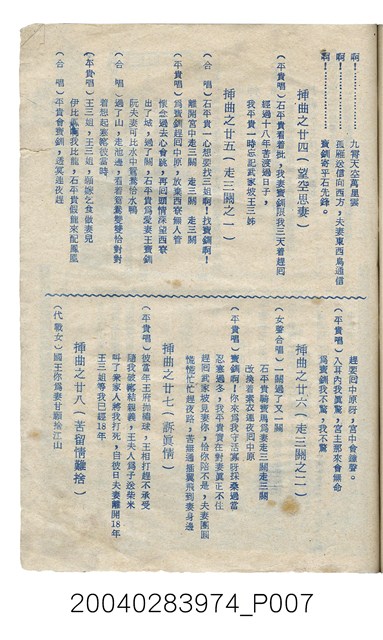 啊！………… 九霄天空萬里雲
啊！………… 孤雁送信向西方，夫妻東西鳥通信
啊！………… 寶釧寄乎石先鋒。
插曲之廿四（望空思妻）
（平貴唱）石平貴看着批，我妻寶釧限我三天着趕囘
經過十八年苦渡過日子，
我平貴一時忘記武家坡王三姊
插曲之廿五（走三關之一）
（合　唱）石平貴一心想要找三姐啊！找寶釧啊！
離開宮中走三關　走三關　走三關
（平貴唱）為寶釧趕囘中原，放棄西寮無人管
懷念過去心會跳，再囘頭情深望西寮
出了城，過了關，石平貴為愛妻王寶釧
阮夫妻可比水中鴛鴦恰水鴨
（合　唱）過了山，走池邊，看着鴛鴦雙雙恰對對
着想起塞鄉彼當時
（平貴唱）王三姐，王三姐，願嫁乞食做妻兒
伊比我比龍，石平貴假龍來配鳳凰
（合　唱）平貴會寶釧，透冥連夜趕
趕要囘中原呀，宮中會鐘聲。
（平貴唱）人耳內我真驚，宮主那來會無命
為寶釧我不驚，我不驚
插曲之廿六（走三關之二）
（女聲合唱）一關過了又一關
石平貴騎寶馬為妻走三關走三關
改換着素衣連夜囘中原
（平貴唱）寶釧啊！你來為我守活寡呀採桑過當
忍寒過冬，我平貴實在對妻眞正不住
趕囘武家坡見妻你，恰你陪不是，夫妻團圓
慌慌忙忙趕夜路，若無通插翼飛到妻身邊
插曲之廿七（訴眞情）
（平貴唱）彼當年王府拋繡球，王相打趕不承受
隨我破鄉結親義，王夫人為子送柴米
叫了衆家人將我打死，自彼日夫妻離開18年
王三姐等我已經18年
插曲之廿八（苦留情難捨）
（代戰女）國王你為妻甘願捨江山
20040283974_P007